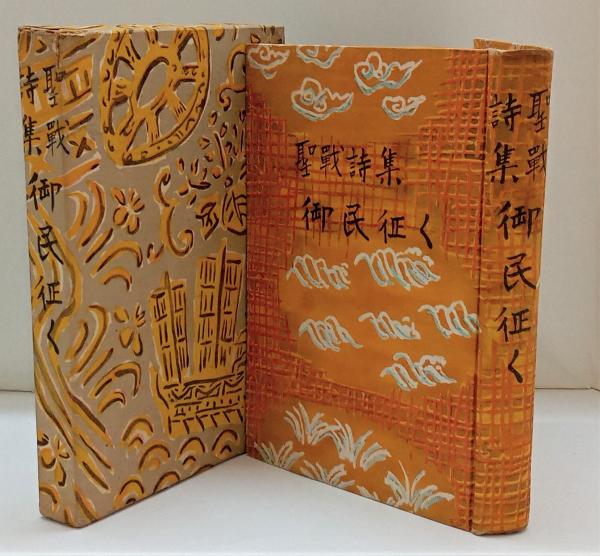 聖戰
詩集
御民征く
聖戰詩集
御民征く
聖戰
詩集
御民征く